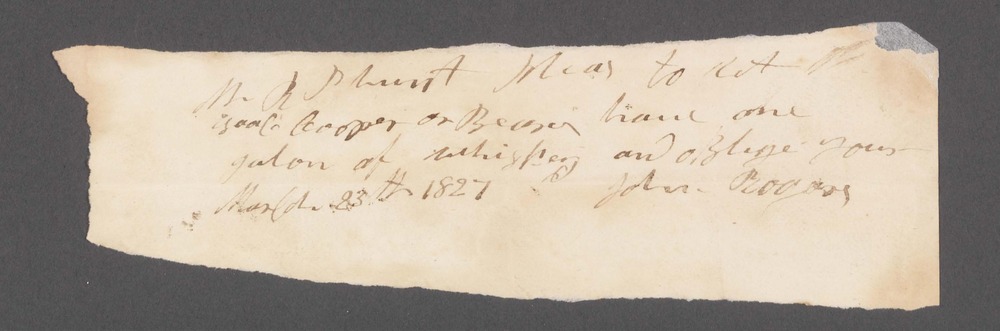 Mr R Shurt pleas to let M
isaac Cooper or Bearer have one
galon of whiskey and oblige yours
March 23th 1827 John Rogers